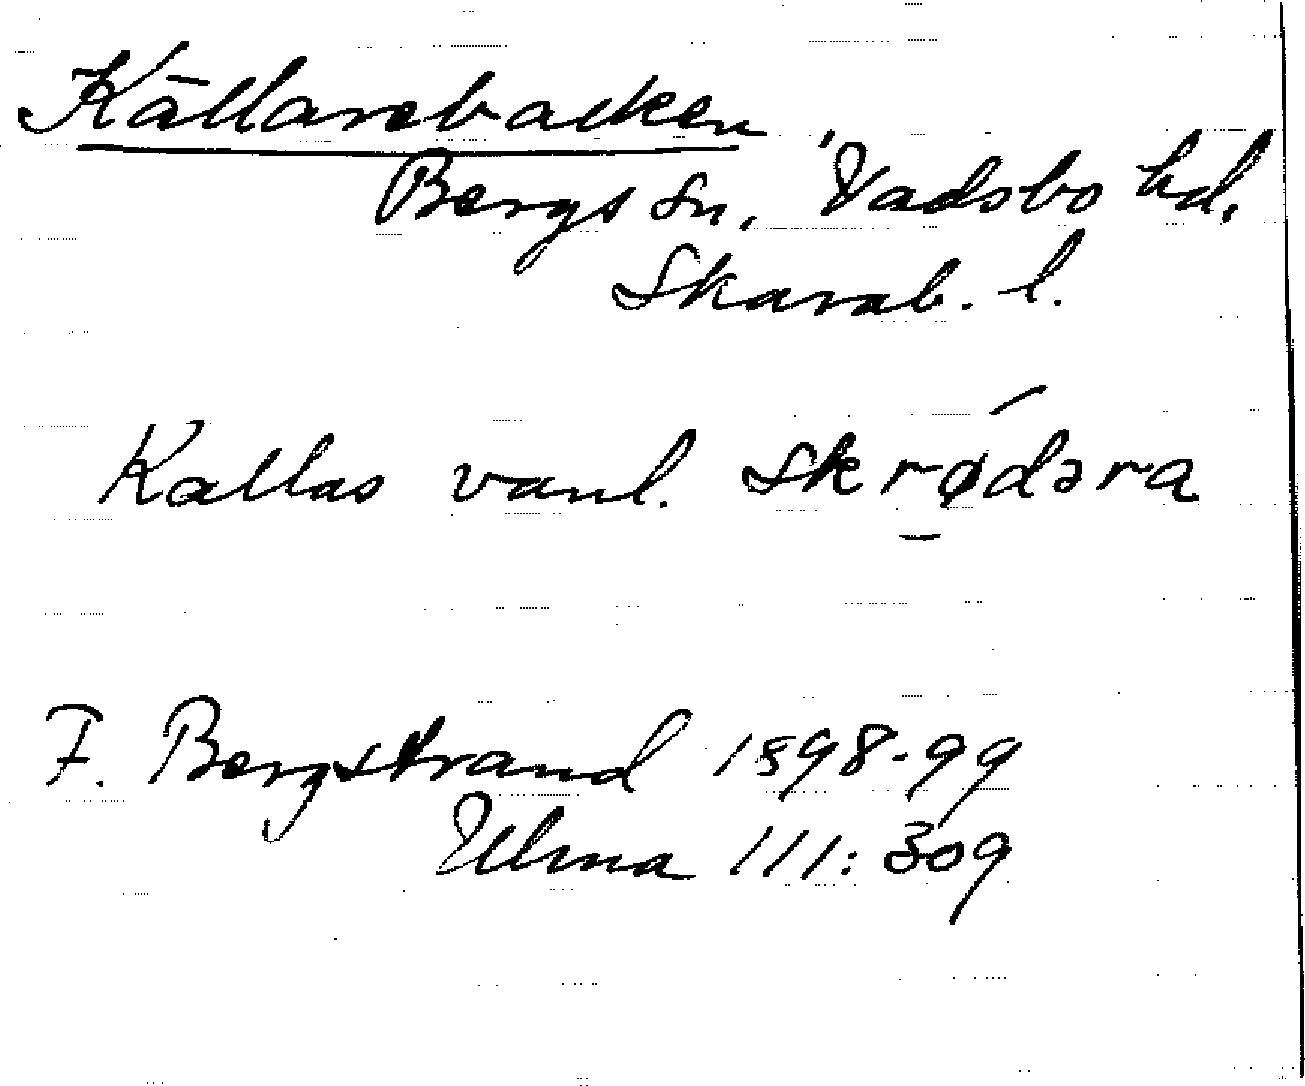 Källarebacken
Bergs sn, Vadsbo hd,
Skarab. l.
Kallas vanl. skrødəra
F. Bergstrand 1898-99
Ulma 111:309